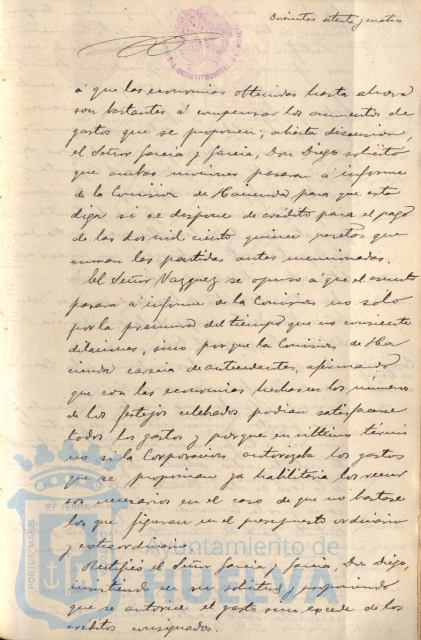 Doscientos ochenta y cuatro
á que las economias obtenidas hasta ahora
son bastantes á compensar los aumentos de
gastos que se proponen; abierta discusion,
el Señor Garcia y Garcia, Don Diego solicitó
que ambas mociones pasaran á informe
de la Comision de Hacienda para que esta
diga si se dispone de crédito para el pago
de las dos mil ciento quince pesetas que
suman las partidas antes mencionadas.
El Señor Vazquez se opuso á que el asunto
pasara á informe de la Comision no solo
por la premura del tiempo que no consiente
dilaciones, sino porque la Comision de Ha
cienda carecia de antecedentes, afirmando
que con las economias hechas en los números
de los festejos celebrados podian satisfacerse
todos los gastos y porque en último térmi
no si la Corporacion autorizaba los gastos
que se proponian ya habilitaria los recur
sos necesarios en el caso de que no bastase
los que figuran en el presupuesto ordinario
y extraordinario.
Rectificó el Señor Garcia y Garcia, Don Diego,
insistiendo en su solicitud y proponiendo
que se autorice el gasto sino excede de los
créditos consignados.
PORTUS MARIS
ET TERRAE
Ayuntamiento de
HUELVA